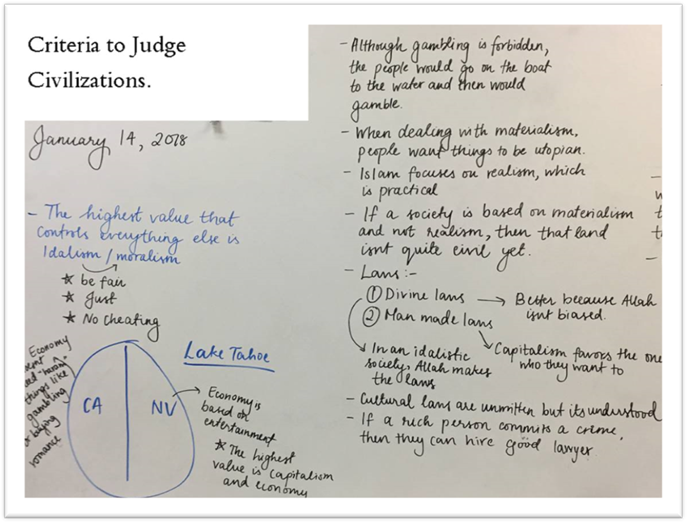 Criteria to Judge
Civilizations.
January 14, 2018
- The highest value that
controls everything else is
Idalism / moralism
★ be fair
★ Just
★ No cheating
Lake Tahoe
Economy
things like
gambling
buying
romance
CA
NV
Economy is
based on
entertainment
★ The highest
value is capitalism
and economy
- Although gambling is forbidden,
the people would go on the boat
to the water and then would
gamble.
- When dealing with materialism,
people want things to be utopian.
- Islam focuses on realism, which
is practical
- If a society is based on materialism
and not realism, then that land
isnt quite civil yet.
- Laws :-
① Divine laws → Better because Allah
isnt biased.
② Man made laws
In an idalistic
society, Allah makes
the laws
Capitalism favors the one
who they want to
- Cultural laws are unwritten but its understood
- If a rich person commits a crime,
then they can hire good lawyer